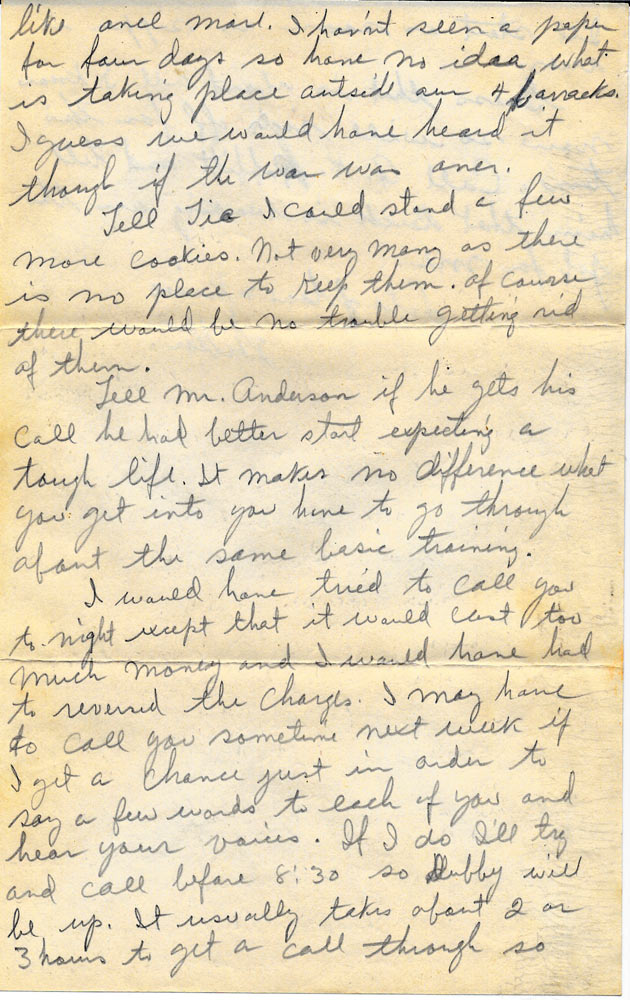 like and mad. I havn't seen a paper
for four days so have no idaa what
is taking place outside our 4 barracks.
I guess we would have heard it
though if the war was over.
Tell Tie I could stand a few
more cookies. Not very many as there
is no place to keep them. Of course
there would be no trouble getting rid
of them.
Tell Mr. Anderson if he gets his
call he had better start expecting a
tough life. It makes no difference what
you get into you have to go through
about the same basic training.
I would have tried to call you
to-night except that it would cost too
much money and I would have had
to reversed the charges. I may have
to call you sometime next week if
I get a chance just in order to
say a few words to each of you and
hear your voices. If I do I'll try
and call before 8:30 so Bubby will
be up. It usually takes about 2 or
3 hours to get a call through so